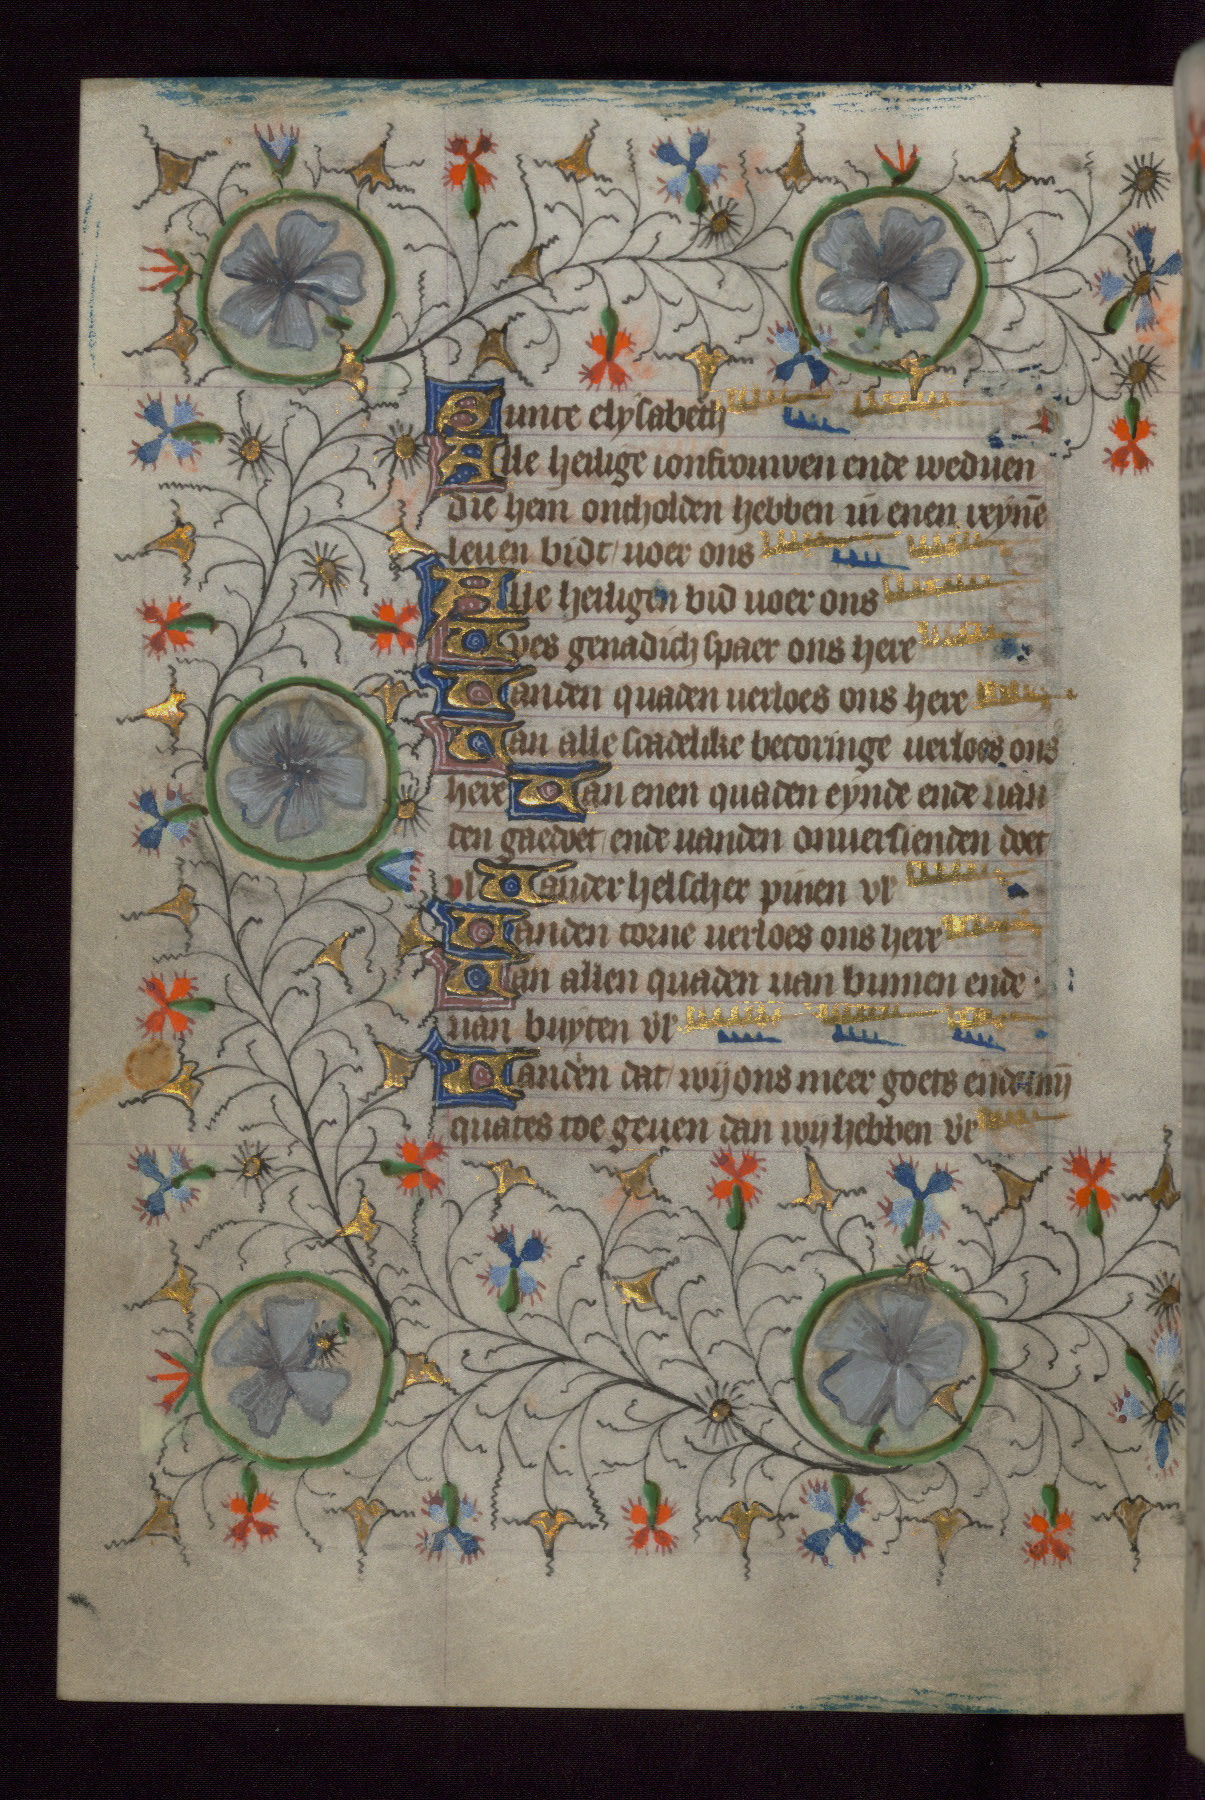 Sunte elysabeth
Alle heilige ionfrouwen ende weduen
die hem ontholden hebben in enen reynē
leuen bidt uoer ons
Alle heiligen bid uoer ons
Wes genadich spaer ons here
Vanden quaden uerloes ons here
Van alle scadelike becoringe uerloes ons
here Van enen quaden eynde ende uan
den gaedoet ende uanden onuersienden doet
vl Vander helscher pinen vl
Vanden torne uerloes ons here
Van allen quaden uan binnen ende
uan buyten vl
Vanden dat wij ons meer goets ende
quates toe geuen dan wij hebben vl